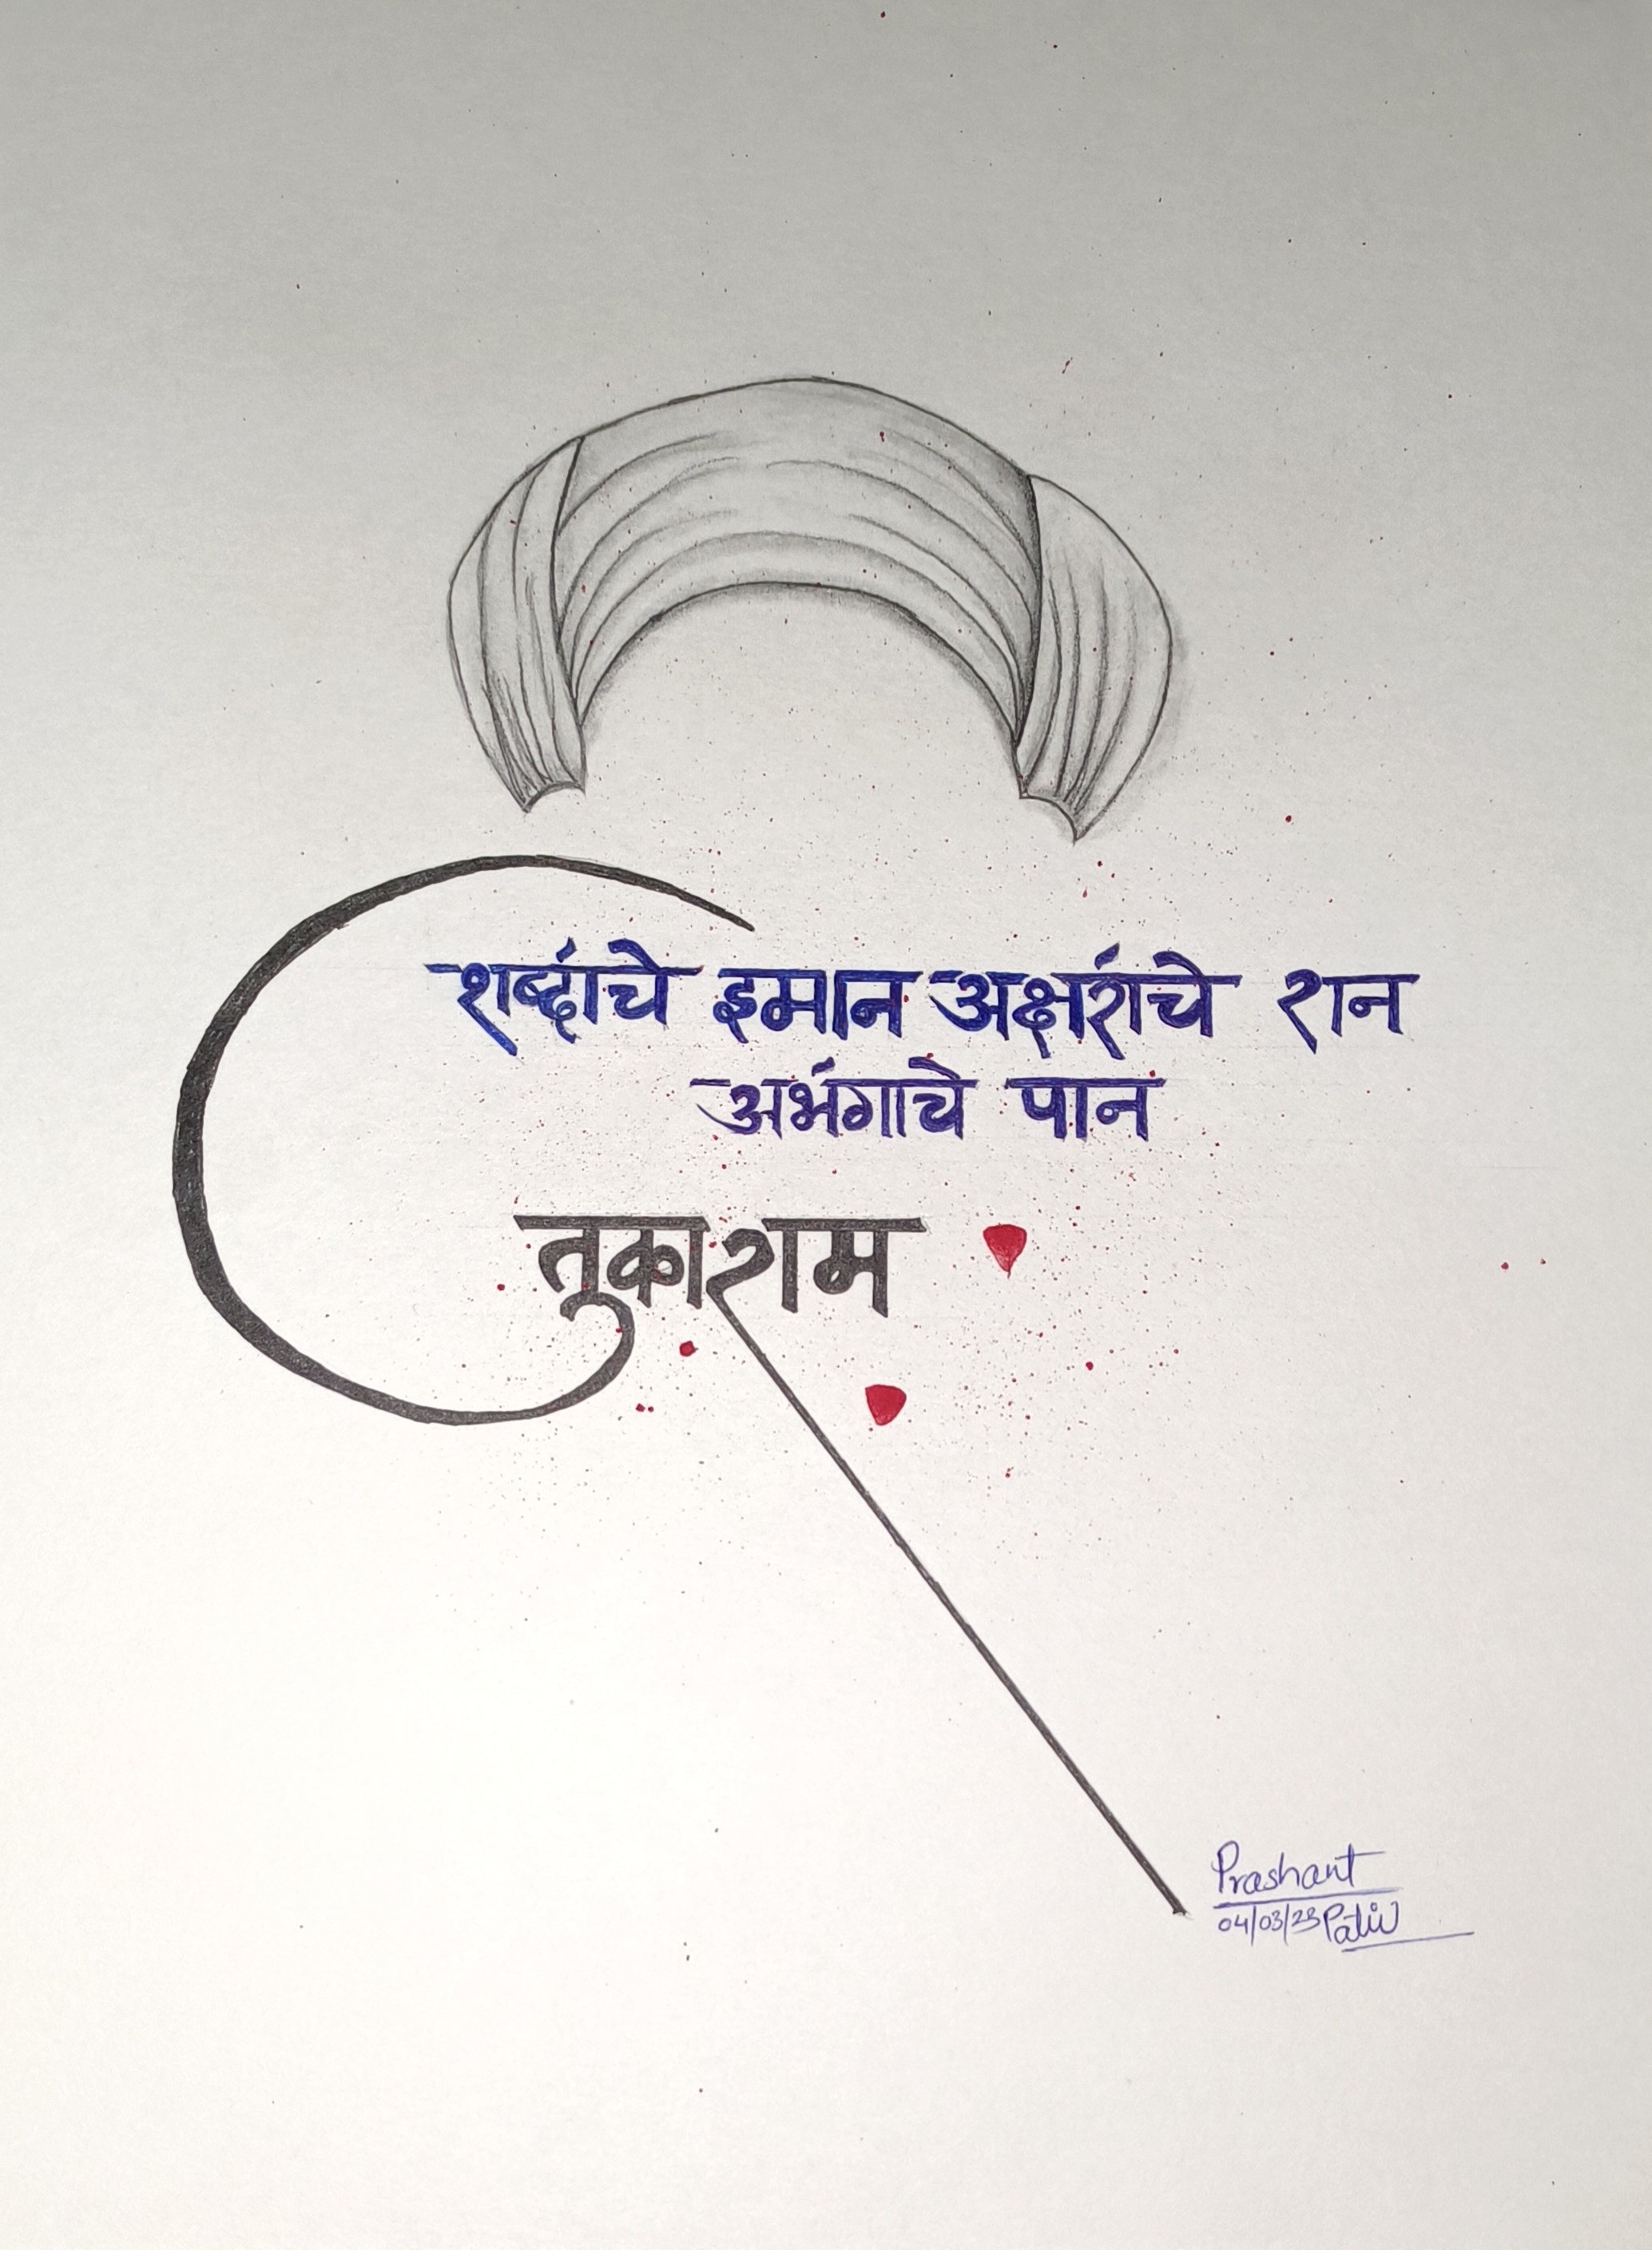 शब्दांचे इमान अक्षरांचे रान
अभंगाचे पान
तुकाराम
Prashant
04/03/23 Patil